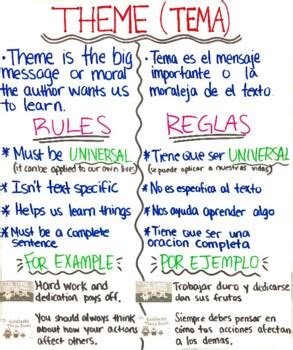 THEME (TEMA)
• Theme is the big
message or moral
the author wants us
to learn.
• Tema es el mensaje
importante o la
moraleja de el texto.
RULES
* Must be UNIVERSAL
(it can be applied to our own lives)
* Isn't text specific
* Helps us learn things
* Must be a complete
sentence
REGLAS
* Tiene que ser UNIVERSAL
(se puede aplicar a nuestras vidas)
* No es especifica al texto
* Nos ayuda aprender algo
* Tiene que ser una
oracion completa
FOR EXAMPLE
Hard work and
dedication pays off.
You should always think
about how your actions
affect others.
POR EJEMPLO
Trabajar duro y dedicarse
dan sus frutos
Siempre debes pensar en
cómo tus acciones afectan
a los demas.